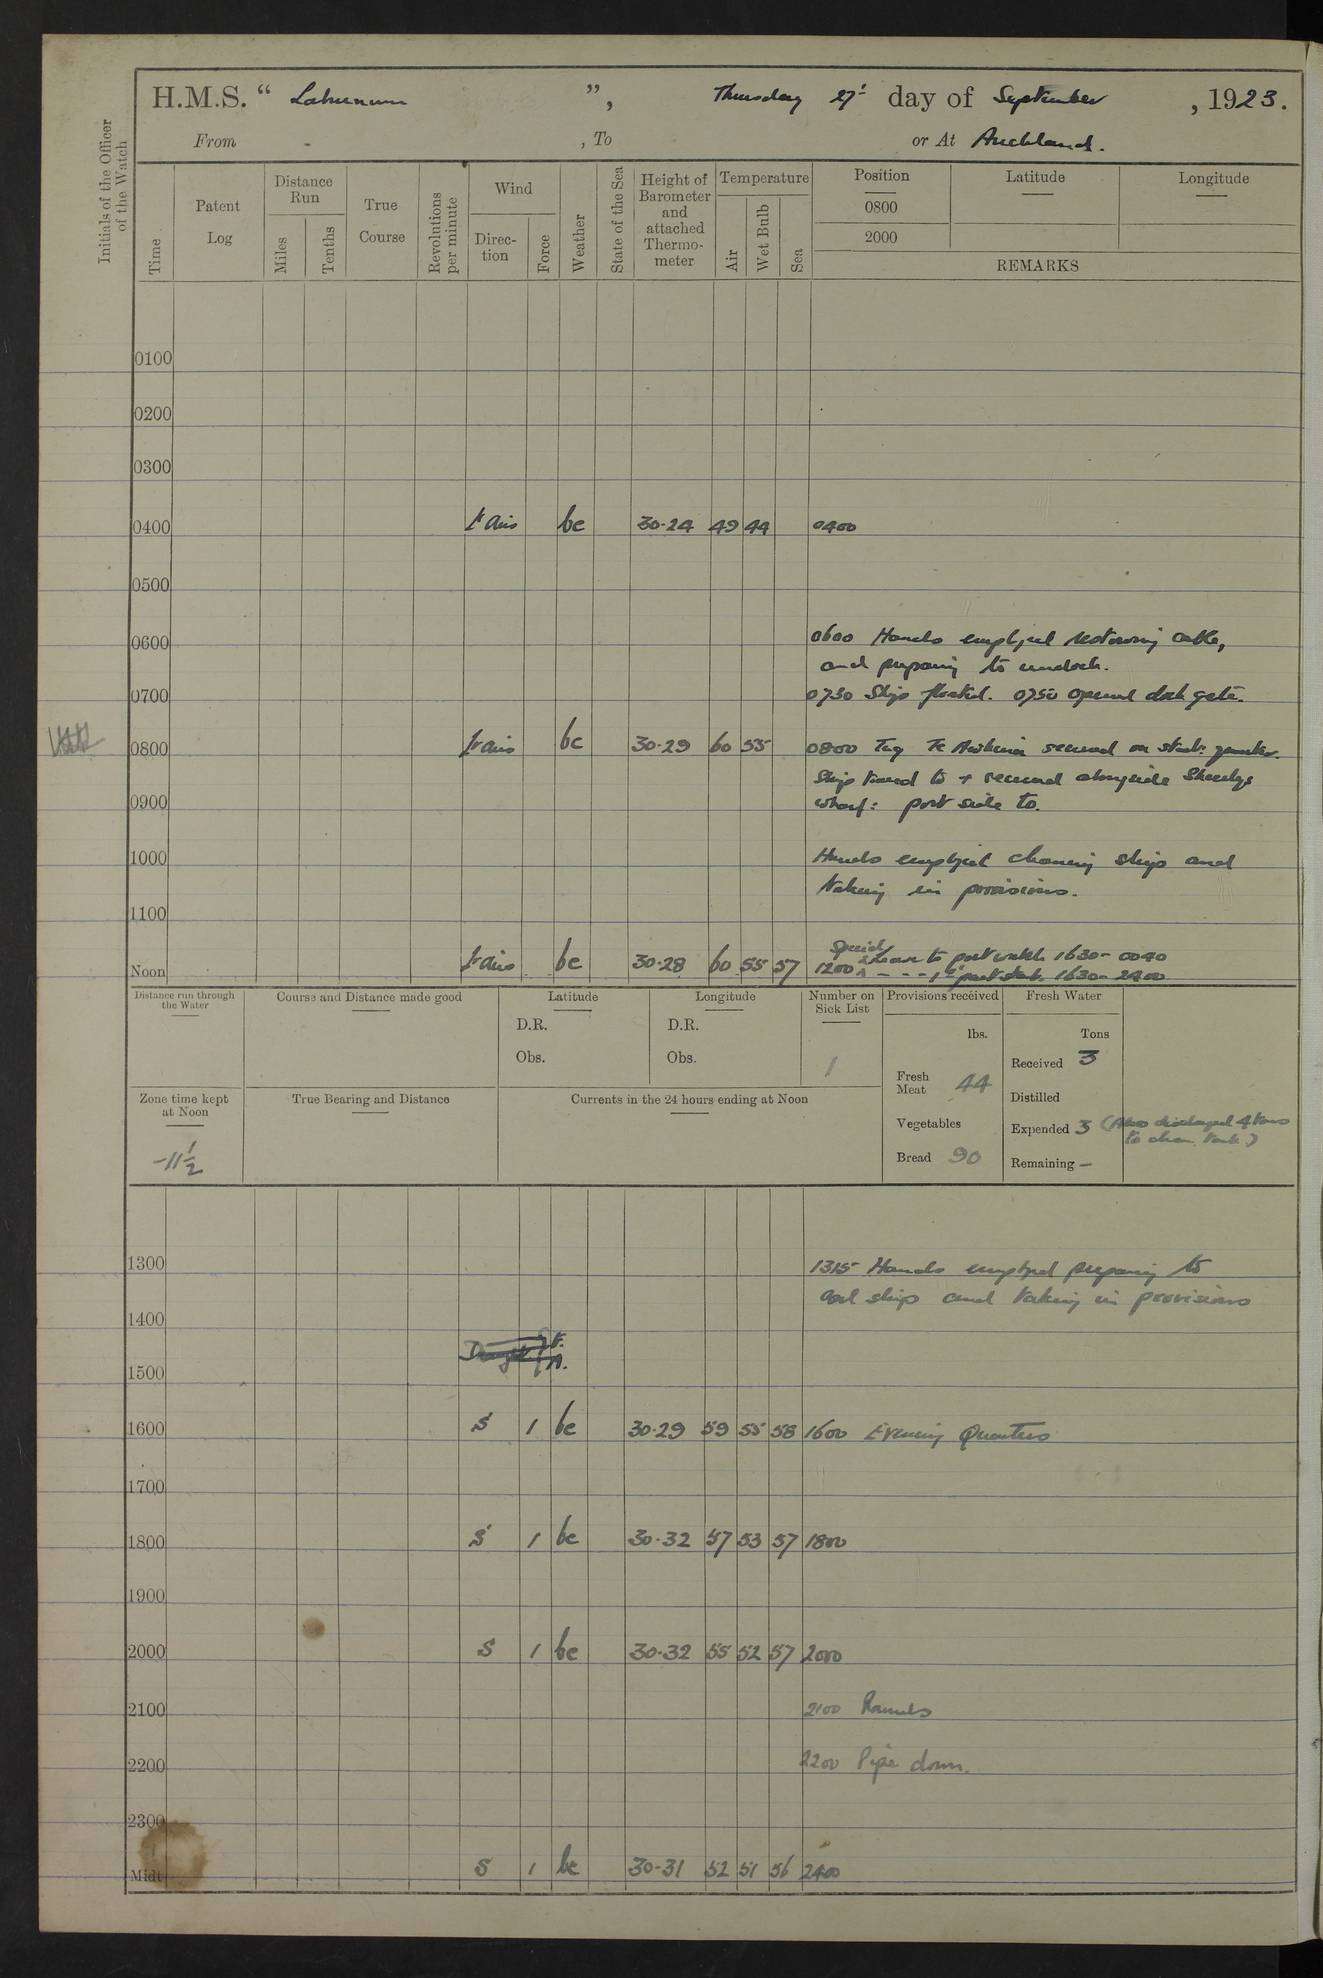 H.M.S. " Laburnum ", Thursday 27th day of September, 1923.
From - , To or At Auckland.
Initials of the Officer of the Watch
Time
Patent Log
Distance Run
Miles
Tenths
True Course
Revolutions per minute
Wind
Direc-tion
Force
Weather
State of the Sea
Height of Barometer and attached Thermo-meter
Temperature
Air
Wet Bulb
Sea
Position
0800
2000
Latitude
Longitude
REMARKS
0100
0200
0300
0400 lt airs bc 30.24 49 44 0400
0500
0600 Hands employed restowing cable,
0600
and preparing to undock.
0700 0730 Ship floated. 0750 opened dock gate.
0800 lt airs bc 30.29 60 55 0800 Tug Te Awhina secured on starb: quarter.
Ship towed to + secured alongside Sheerlegs
0900 wharf: port side to.
1000 Hands employed cleaning ship and
taking in provisions.
1100
Special
Noon lt airs bc 30.28 60 55 57 1200 leave to port watch 1630 - 0040
- - - 1st part starb. 1630 - 2400
Distance run through the Water
Course and Distance made good
Latitude
D.R.
Obs.
Longitude
D.R.
Obs.
Number on Sick List
1
Provisions received
lbs.
Fresh Meat 44
Vegetables
Bread 90
Fresh Water
Tons
Received 3
Distilled
Expended 3 (Also discharged 4 tons
to clean tank)
Remaining -
Zone time kept at Noon
-11 1/2
True Bearing and Distance
Currents in the 24 hours ending at Noon
1300 1315 Hands employed preparing to
coal ship and taking in provisions
1400
Draught F.
A.
1500
1600 S 1 bc 30.29 59 55 58 1600 Evening Quarters
1700
1800 S 1 bc 30.32 57 53 57 1800
1900
2000 S 1 bc 30.32 55 52 57 2000
2100 2100 Rounds
2200 2200 Pipe down.
2300
Midt. S 1 bc 30.31 52 51 56 2400